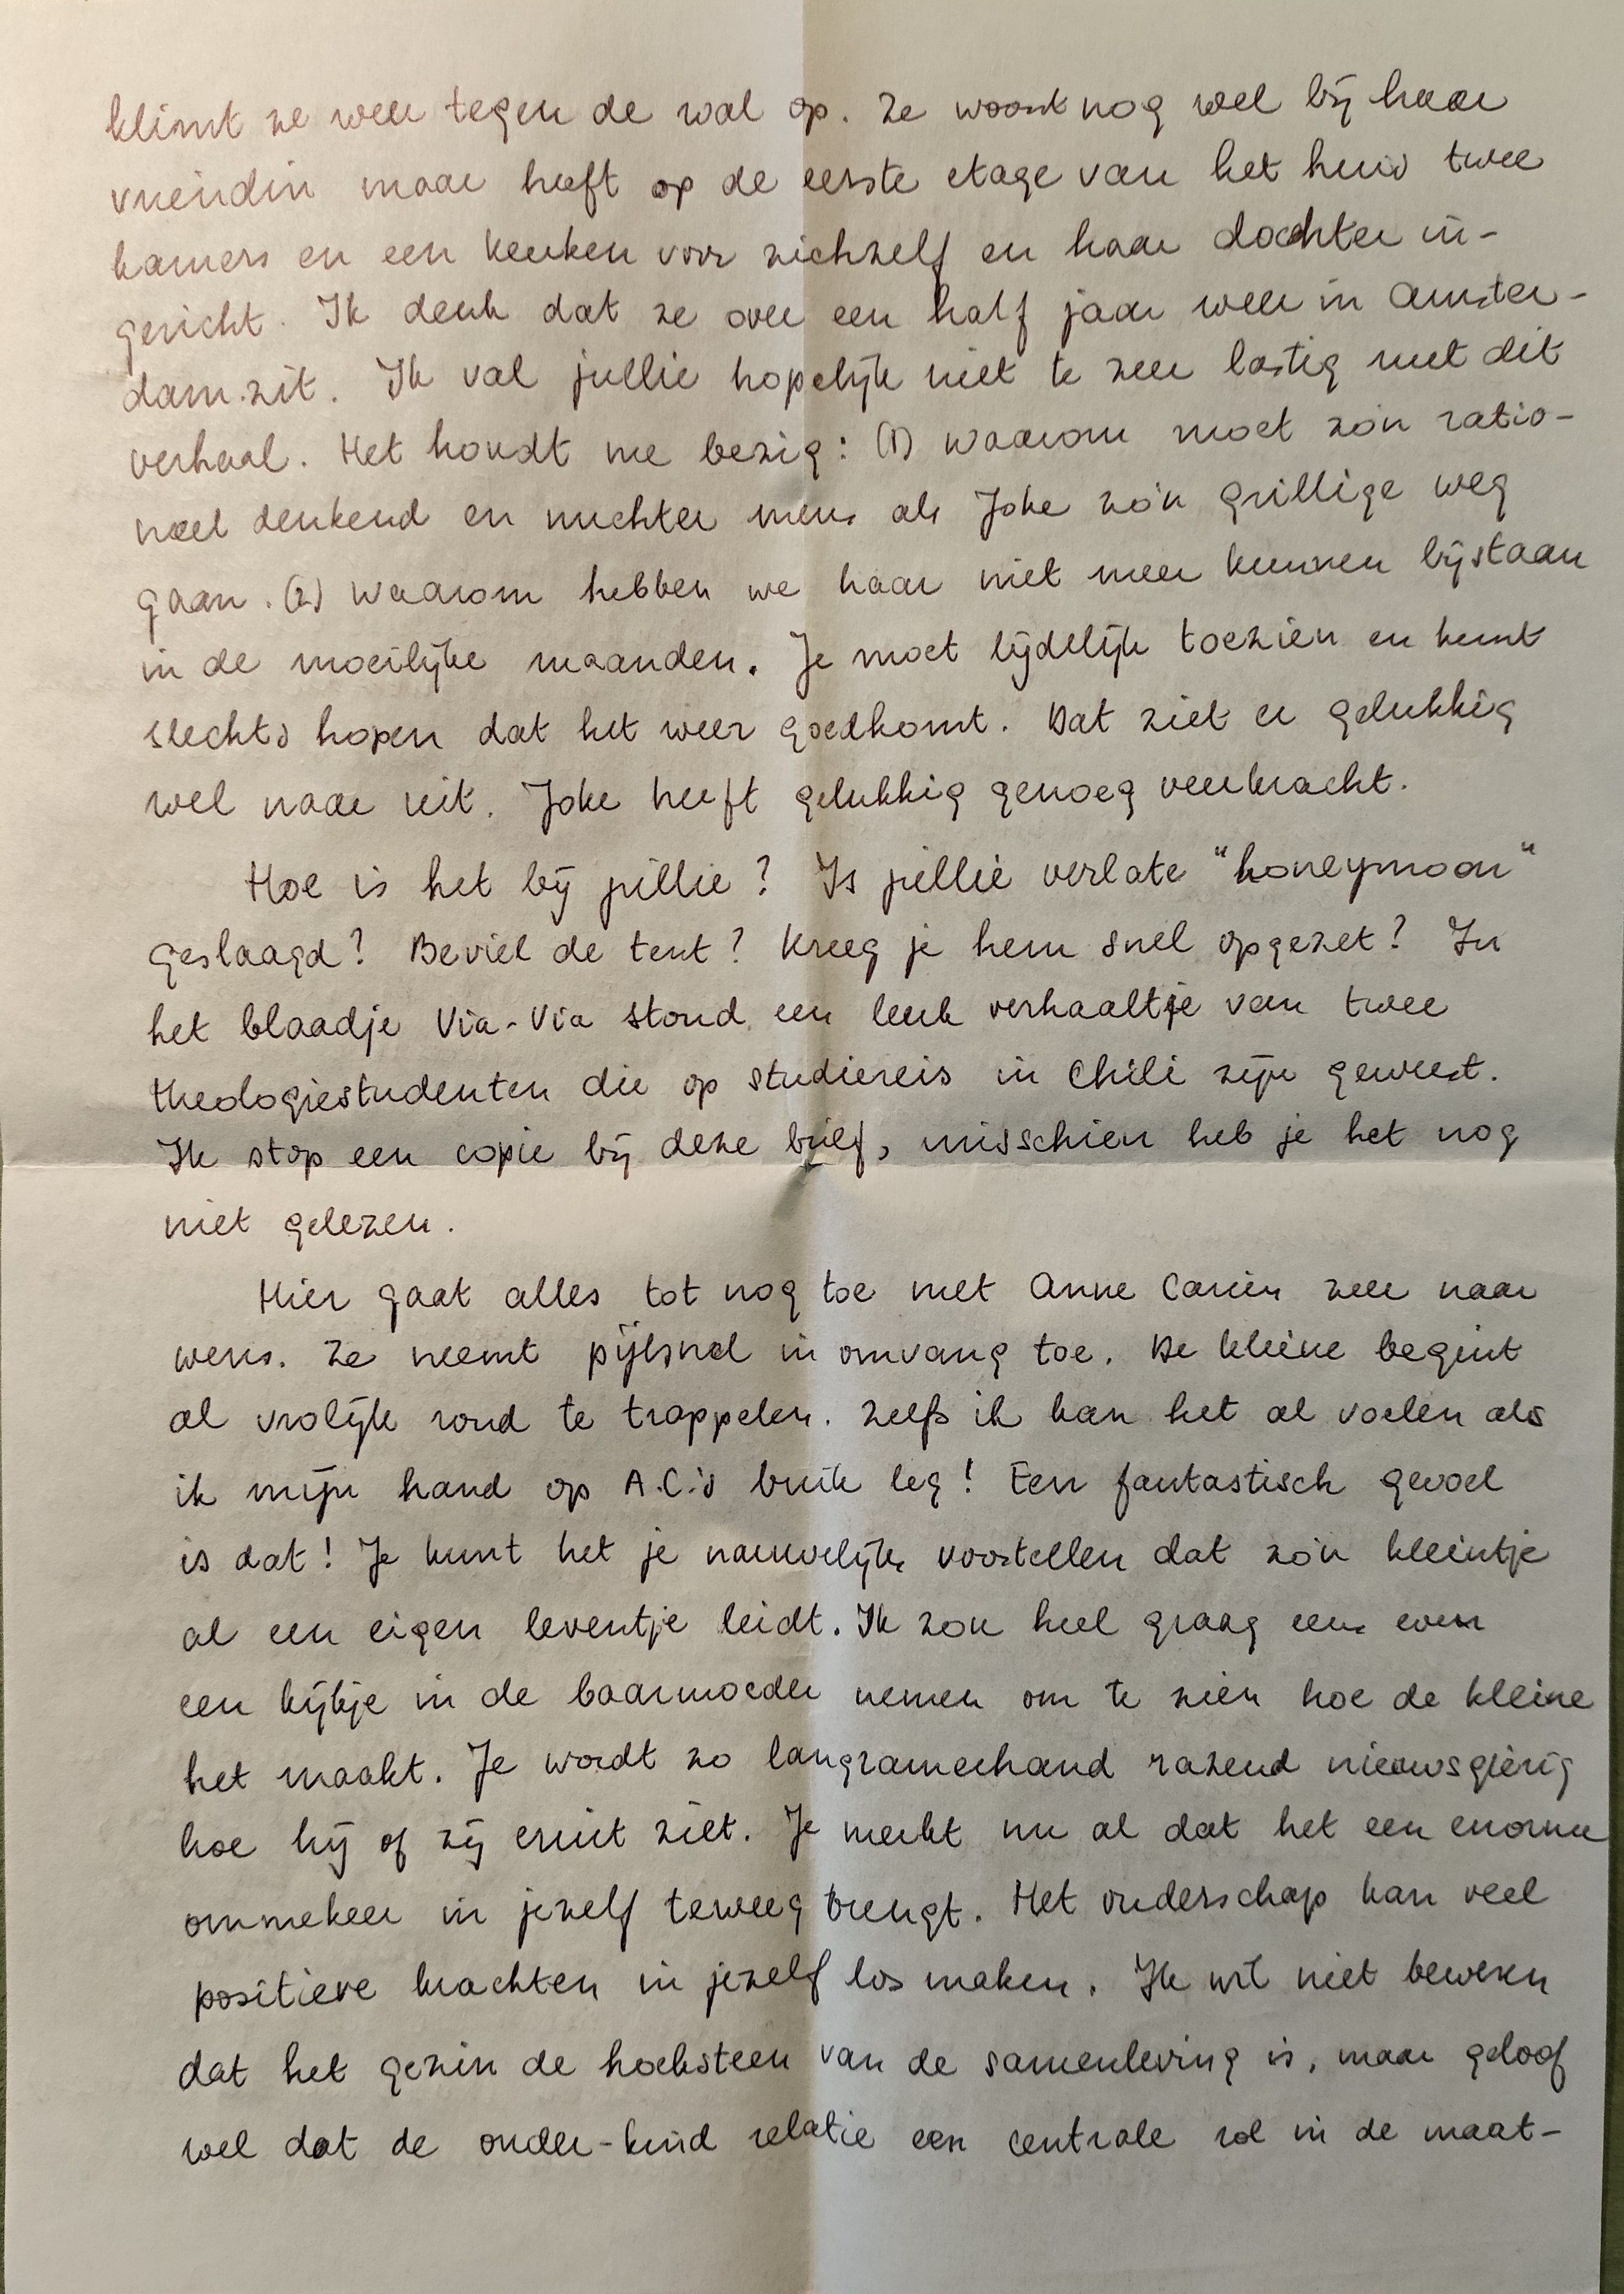 klimt ze weer tegen de wal op. Ze woont nog wel bij haar
vriendin maar heeft op de eerste etage van het huis twee
kamers en een keuken voor zichzelf en haar dochter in-
gericht. Ik denk dat ze over een half jaar weer in Amster-
dam zit. Ik val jullie hopelijk niet te zeer lastig met dit
verhaal. Het houdt me bezig: (1) waarom moet zo'n ratio-
neel denkend en nuchter mens als Joke zo'n grillige weg
gaan. (2) waarom hebben we haar niet meer kunnen bijstaan
in de moeilijke maanden. Je moet lijdelijk toezien en kunt
slechts hopen dat het weer goedkomt. Dat ziet er gelukkig
wel naar uit. Joke heeft gelukkig genoeg veerkracht.
Hoe is het bij jullie? Is jullie verlate "honeymoon"
geslaagd? Beviel de tent? Kreeg je hem snel opgezet? In
het blaadje Via-Via stond een leuk verhaaltje van twee
theologiestudenten die op studiereis in Chili zijn geweest.
Ik stop een copie bij deze brief, misschien heb je het nog
niet gelezen.
Hier gaat alles tot nog toe met Anne Carien zeer naar
wens. Ze neemt pijlsnel in omvang toe. De kleine begint
al vrolijk rond te trappelen. Zelfs ik kan het al voelen als
ik mijn hand op A.C.'s buik leg! Een fantastisch gevoel
is dat! Je kunt het je nauwelijks voorstellen dat zo'n kleintje
al een eigen leventje leidt. Ik zou heel graag eens even
een kijkje in de baarmoeder nemen om te zien hoe de kleine
het maakt. Je wordt zo langzamerhand razend nieuwsgierig
hoe hij of zij eruit ziet. Je merkt nu al dat het een enorme
ommekeer in jezelf teweeg brengt. Het ouderschap kan veel
positieve krachten in jezelf los maken. Ik wil niet beweren
dat het gezin de hoeksteen van de samenleving is, maar geloof
wel dat de ouder-kind relatie een centrale rol in de maat-